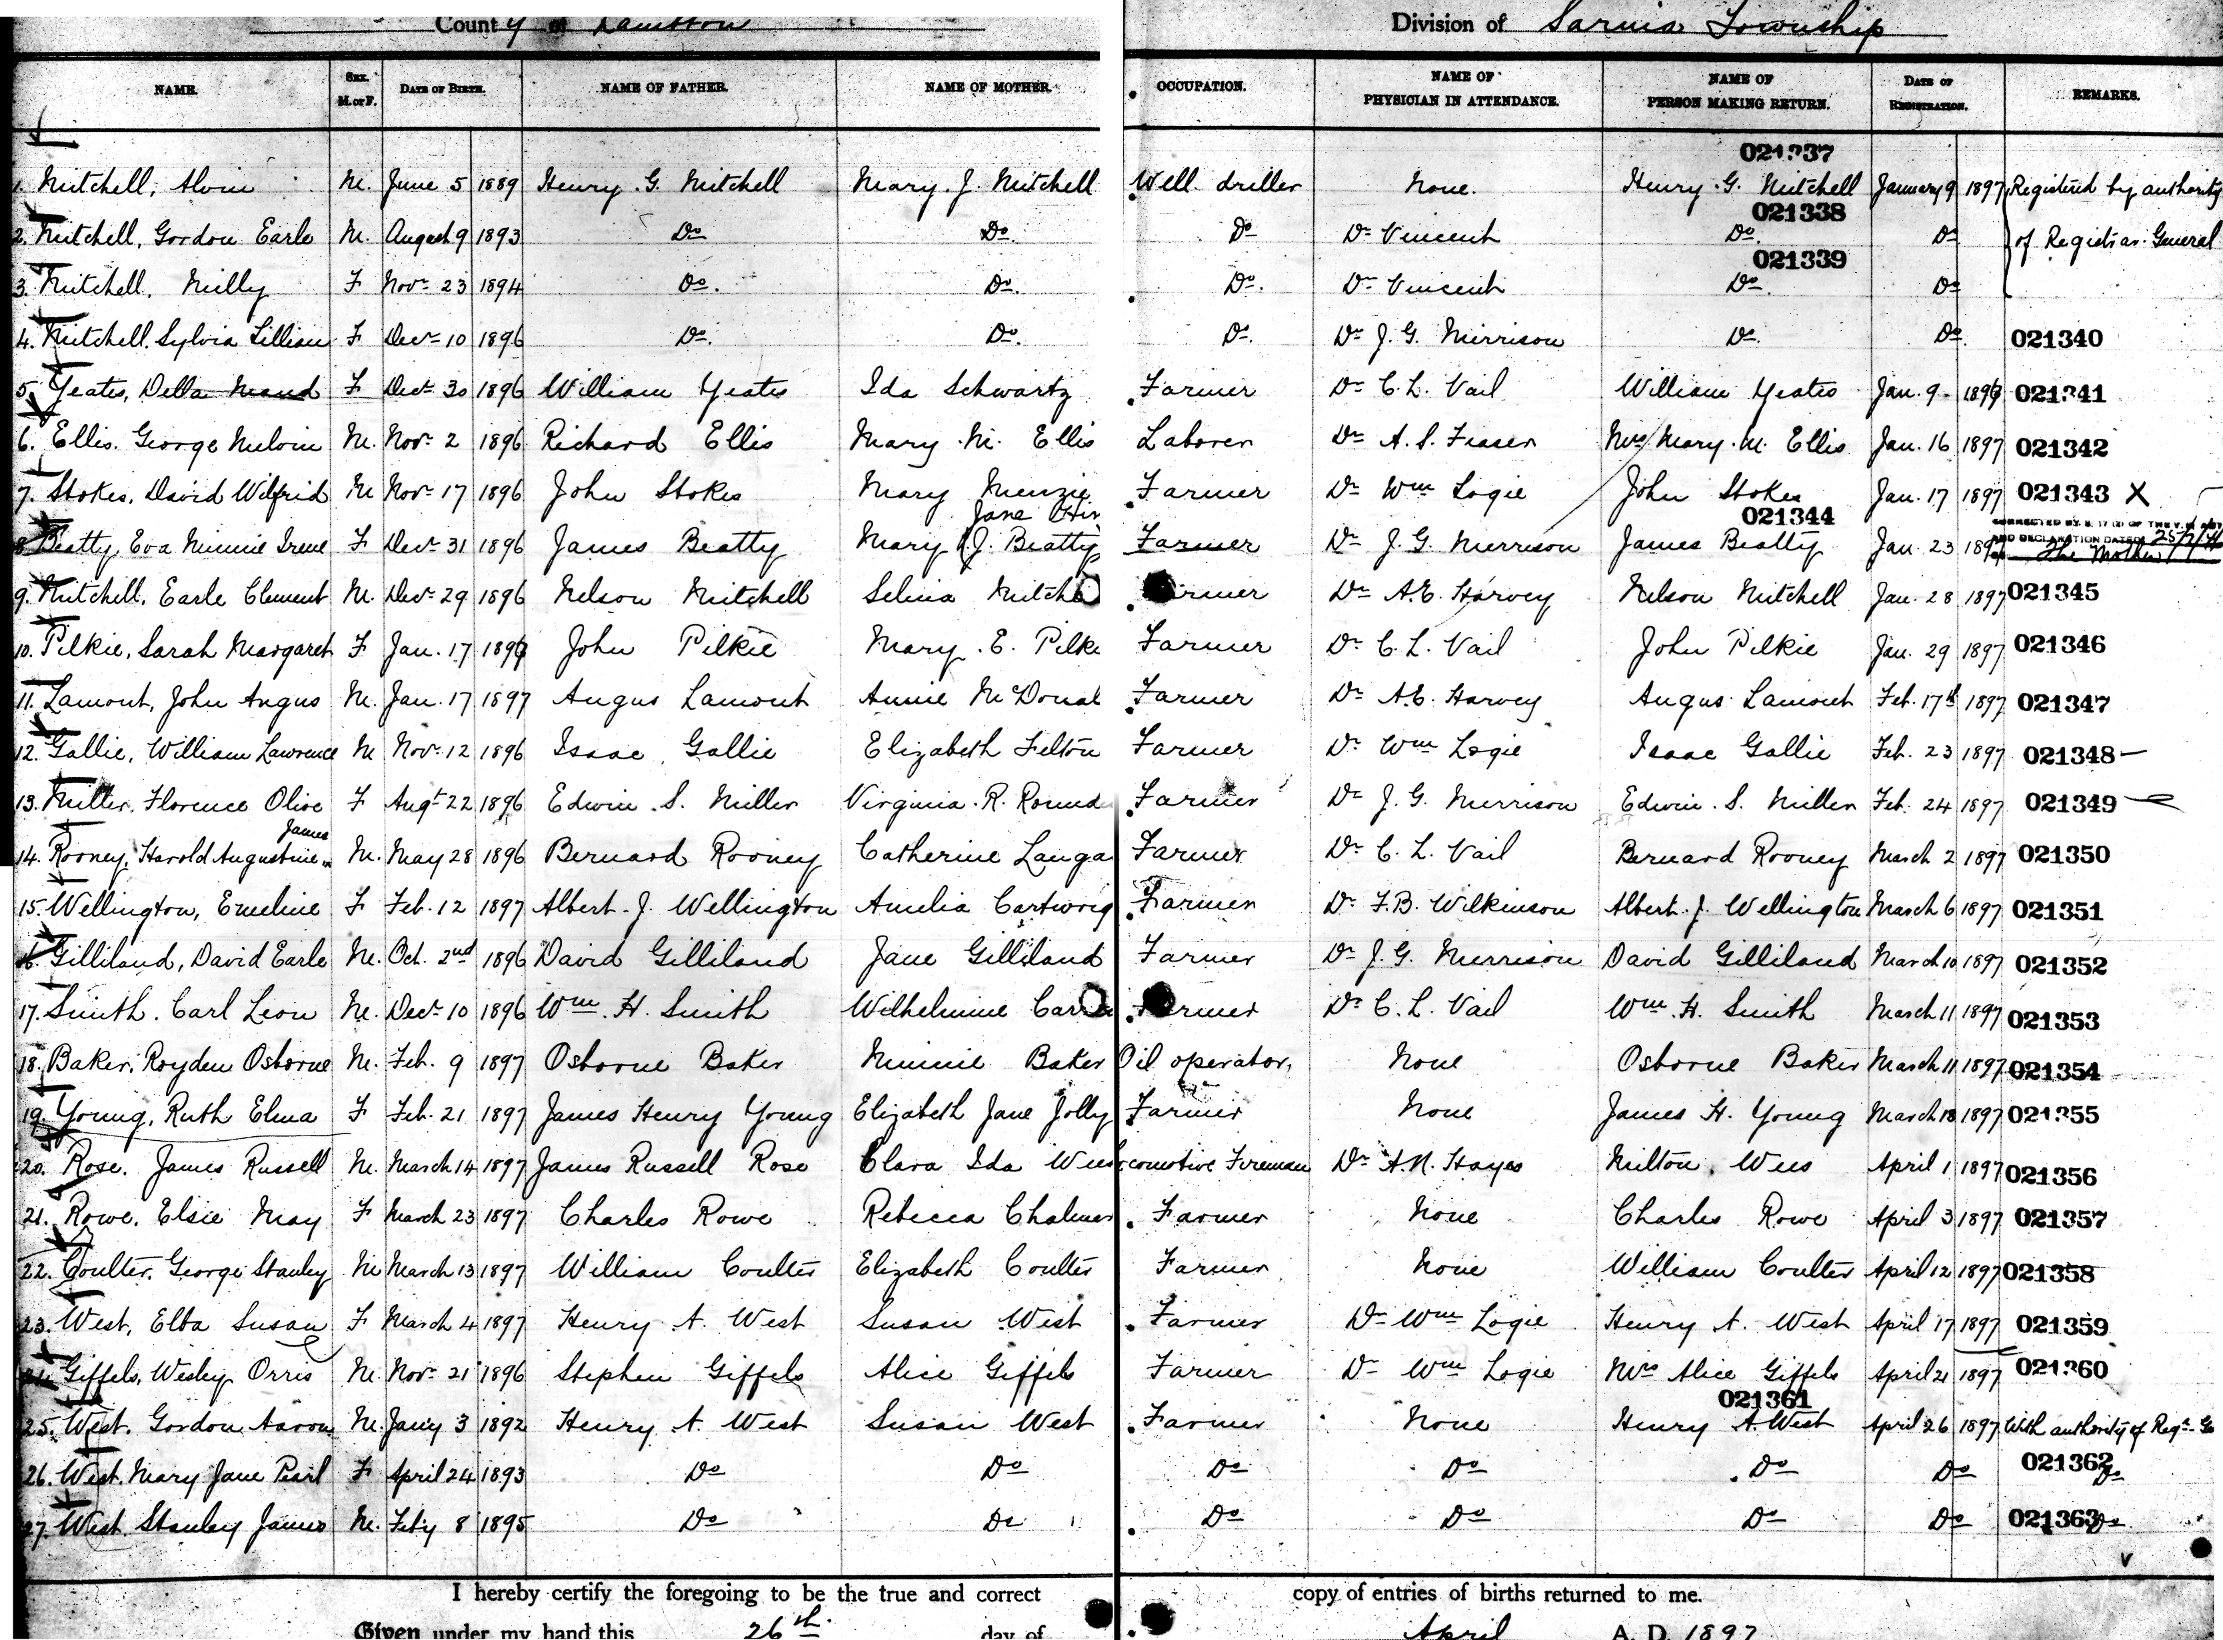 County of Lambton Division of Sarnia Township
NAME. SEX. M. or F. DATE OF BIRTH. NAME OF FATHER. NAME OF MOTHER. OCCUPATION. NAME OF PHYSICIAN IN ATTENDANCE. NAME OF PERSON MAKING RETURN. DATE OF REGISTRATION. REMARKS.
021337
1. Mitchell, Alvin M. June 5 1889 Henry. G. Mitchell Mary. J. Mitchell Well driller None. Henry. G. Mitchell January 9 1897 Registered by authority
021338
2. Mitchell, Gordon Earle M. August 9 1893 Do Do. Do Dr Vincent Do. Do of Registrar General
021339
3. Mitchell, Milly F Novr 23 1894 Do. Do. Do. Dr Vincent Do. Do
4. Mitchell, Sylvia Lillian F Decr 10 1896 Do. Do. Do. Dr J. G. Merrison Do. Do. 021340
5. Yeates, Della Maud F Decr 30 1896 William Yeates Ida Schwartz Farmer Dr C. L. Vail William Yeates Jan. 9 1897 021341
6. Ellis. George Melvin M. Novr 2 1896 Richard Ellis Mary. M. Ellis Laborer Dr A. S. Fraser Mrs Mary. M. Ellis Jan. 16 1897 021342
7. Stokes, David Wilfrid M Novr 17 1896 John Stokes Mary Menzie Farmer Dr Wm Logie John Stokes Jan. 17 1897 021343 X
Jane 021344
8. Beatty, Eva Minnie Irene F Decr 31 1896 James Beatty Mary J. Beatty Farmer Dr J. G. Merrison James Beatty Jan. 23 1897 AND DECLARATION DATED The Mother
9. Mitchell, Earle Clement M. Decr 29 1896 Nelson Mitchell Selina Mitche Farmer Dr A.E. Harvey Nelson Mitchell Jan. 28 1897 021345
10. Pilkie, Sarah Margaret F Jan. 17 1897 John Pilkie Mary. E. Pilke Farmer Dr C. L. Vail John Pilkie Jan. 29 1897 021346
11. Lamont, John Angus M. Jan. 17 1897 Angus Lamont Annie McDonal Farmer Dr A.E. Harvey Angus Lamont Feb. 17th 1897 021347
12. Gallie, William Lawrence M Novr 12 1896 Isaac Gallie Elizabeth Felton Farmer Dr Wm Logie Isaac Gallie Feb. 23 1897 021348
13. Miller, Florence Olive F Augt 22 1896 Edwin. S. Miller Virginia. R. Round Farmer Dr J. G. Merrison Edwin. S. Miller Feb. 24 1897 021349
James
14. Rooney, Harold Augustine M. May 28 1896 Bernard Rooney Catherine Langa Farmer Dr C. L. Vail Bernard Rooney March 2 1897 021350
15. Wellington, Emeline F Feb. 12 1897 Albert. J. Wellington Amelia Cartwrig Farmer Dr F.B. Wilkinson Albert. J. Wellington March 6 1897 021351
16. Gilliland, David Earle M. Oct. 2nd 1896 David Gilliland Jane Gilliland Farmer Dr J. G. Merrison David Gilliland March 10 1897 021352
17. Smith. Carl Leon M. Decr 10 1896 Wm. H. Smith Wilhelmine Farmer Dr C. L. Vail Wm. H. Smith March 11 1897 021353
18. Baker, Royden Osborne M. Feb. 9 1897 Osborne Baker Minnie Baker Oil operator, None Osborne Baker March 11 1897 021354
19. Young, Ruth Elma F Feb. 21 1897 James Henry Young Elizabeth Jane Jolly Farmer None James H. Young March 18 1897 021355
20. Rose. James Russell M. March 14 1897 James Russell Rose Clara Ida Wees Locomotive Fireman Dr A.N. Hayes Milton Wees April 1 1897 021356
21. Rowe. Elsie May F March 23 1897 Charles Rowe Rebecca Chalmers Farmer None Charles Rowe April 3 1897 021357
22. Coulter. George Stanley M March 13 1897 William Coulter Elizabeth Coulter Farmer None William Coulter April 12 1897 021358
23. West, Elta Susan F March 4 1897 Henry A. West Susan West Farmer Dr Wm Logie Henry A. West April 17 1897 021359
24. Giffels, Wesley Orris M. Novr 21 1896 Stephen Giffels Alice Giffels Farmer Dr Wm Logie Mrs Alice Giffels April 21 1897 021360
021361
25. West. Gordon Aaron M. Jany 3 1892 Henry A. West Susan West Farmer None Henry A. West April 26 1897 With authority of Regr. Ge
26. West. Mary Jane Pearl F April 24 1893 Do Do Do Do Do Do 021362 Do
27. West. Stanley James M. Feby 8 1895 Do Do Do Do Do Do 021363 Do
I hereby certify the foregoing to be the true and correct copy of entries of births returned to me.
Given under my hand this 26th day of April A. D. 1897